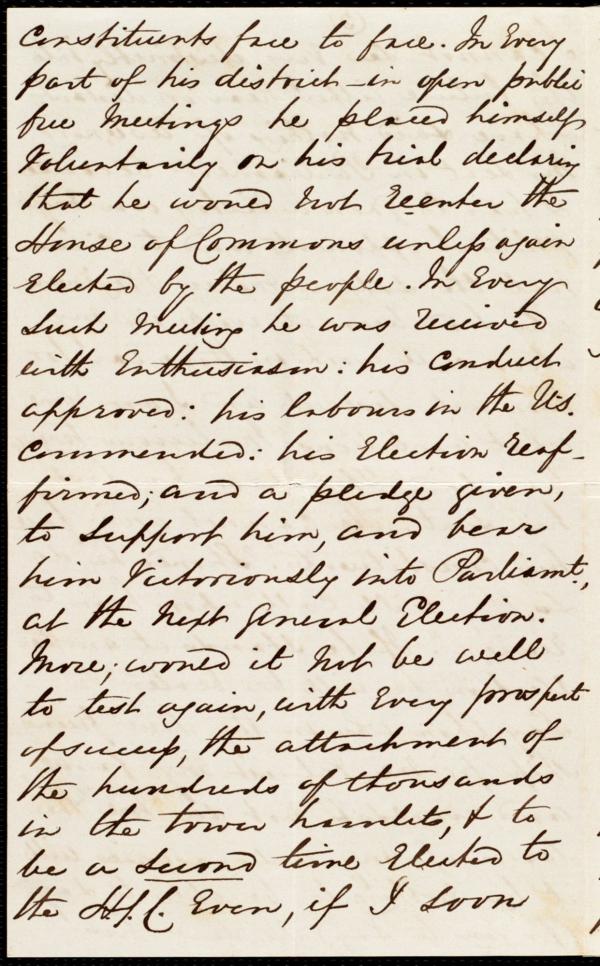 constituents face to face. In Every
part of his district - in open public
free Meetings he placed himself
Voluntarily on his trial declaring
that he would not Reenter the
House of Commons unless again
Elected by the people. In Every
Such Meeting he was received
with Enthusiasm: his Conduct
approved: his labours in the U.S.
Commended: his Election reaf-
firmed; and a pledge given,
to Support him, and bear
him Victoriously into Parliamt,
at the Next General Election.
More; would it not be well
to test again, with Every prospect
of success, the attachment of
the hundreds of thousands
in the tower hamlets, & to
be a second time Elected to
the H/.C. Even, if I soon